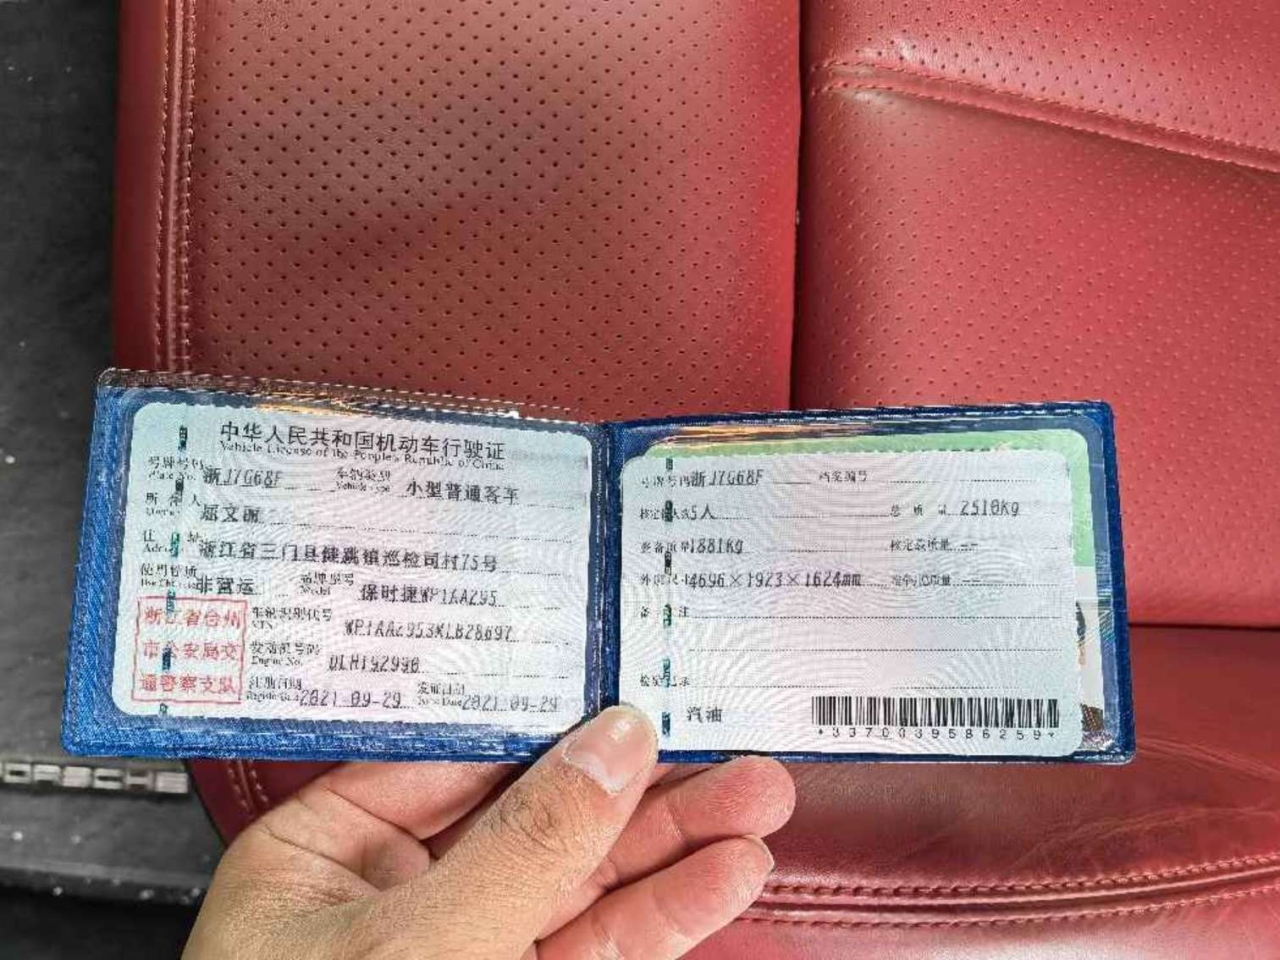 中华人民共和国机动车行驶证
Vehicle License of the People's Republic of China
号牌号码 浙J7G68F 车辆类型 小型普通客车
Plate No. Vehicle Type
所有人 屈文丽
Owner
住址 浙江省三门县健跳镇巡检司村75号
使用性质 非营运 品牌型号 保时捷WP1AA295
Model
浙江省台州
市公安局交
通警察支队
车辆识别代号 WP1AA2953KLB28697
VIN
发动机号码
Engine No.
注册日期 2021-09-29 发证日期 2021-09-29
Register Date Issue Date
号牌号码 浙J7G68F 档案编号
核定载人数 5人 总质量 2510kg
整备质量 1881kg 核定载质量 --
外廓尺寸 4696×1923×1624mm 准牵引总质量 --
备注
检验记录
汽油
*3370039586259*
PORSCHE